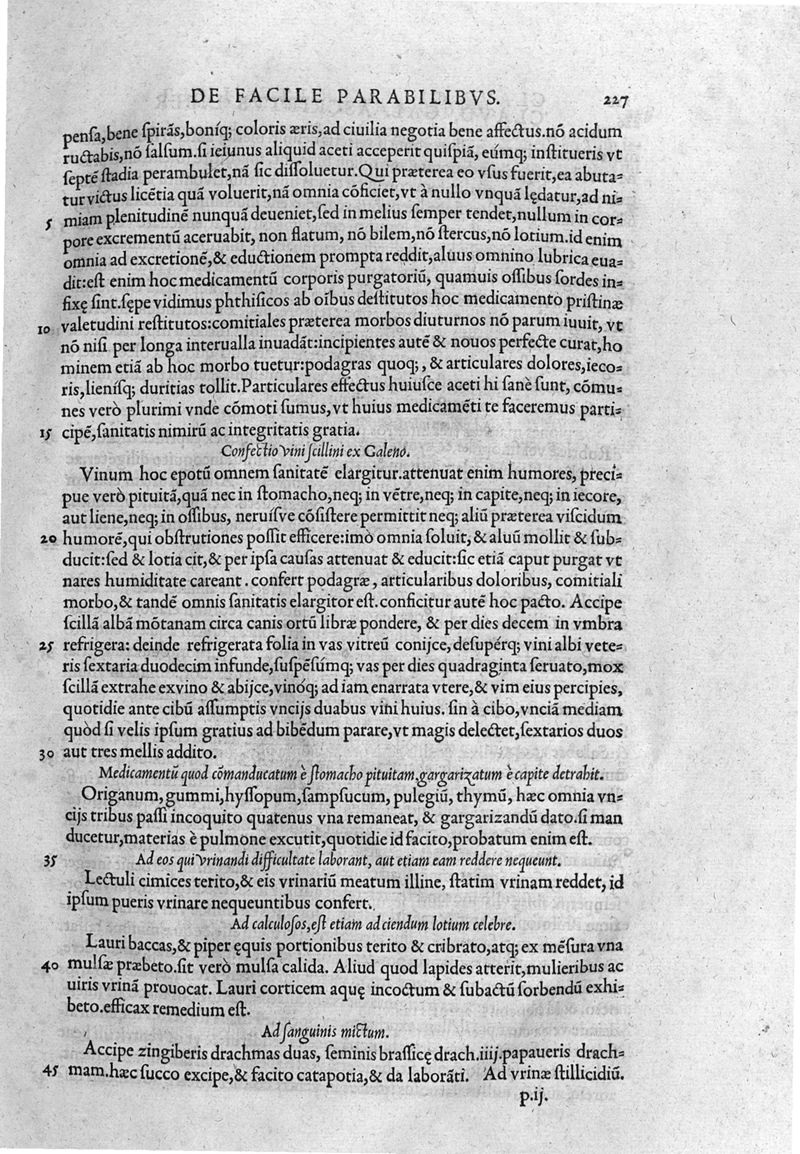 DE FACILE PARABILIBVS. 227
penſa,bene ſpirãs,boníq; coloris æris,ad ciuilia negotia bene affectus.nõ acidum
ructabis,nõ ſalſum.ſi ieiunus aliquid aceti acceperit quiſpiã, eúmq; inſtitueris vt
ſeptẽ ſtadia perambulet,nã ſic diſſoluetur.Qui præterea eo vſus fuerit,ea abuta-
tur victus licẽtia quã voluerit,nã omnia cõficiet,vt à nullo vnquã lędatur,ad ni-
5 miam plenitudinẽ nunquã deueniet,ſed in melius ſemper tendet,nullum in cor-
pore excrementũ aceruabit, non flatum, nõ bilem,nõ ſtercus,nõ lotium.id enim
omnia ad excretionẽ,& eductionem prompta reddit,aluus omnino lubrica eua-
dit:eſt enim hoc medicamentũ corporis purgatoriũ, quamuis oſſibus ſordes in-
fixę ſint.ſępe vidimus phthiſicos ab oĩbus deſtitutos hoc medicamento priſtinæ
10 valetudini reſtitutos:comitiales præterea morbos diuturnos nõ parum iuuit, vt
nõ niſi per longa interualla inuadãt:incipientes autẽ & nouos perfecte curat,ho
minem etiã ab hoc morbo tuetur:podagras quoq;, & articulares dolores,ieco-
ris,lieniſq; duritias tollit.Particulares effectus huiuſce aceti hi ſanè ſunt, cõmu-
nes verò plurimi vnde cõmoti ſumus,vt huius medicamẽti te faceremus parti-
15 cipẽ,ſanitatis nimirũ ac integritatis gratia.
Confectio vini ſcillini ex Galeno.
Vinum hoc epotũ omnem ſanitatẽ elargitur.attenuat enim humores, preci-
pue verò pituitã,quã nec in ſtomacho,neq; in vẽtre,neq; in capite,neq; in iecore,
aut liene,neq; in oſſibus, neruíſve cõſiſtere permittit neq; aliũ præterea viſcidum
20 humorẽ,qui obſtrutiones poſſit efficere:imò omnia ſoluit, & aluũ mollit & ſub-
ducit:ſed & lotia cit,& per ipſa cauſas attenuat & educit:ſic etiã caput purgat vt
nares humiditate careant . confert podagræ , articularibus doloribus, comitiali
morbo,& tandẽ omnis ſanitatis elargitor eſt.conficitur autẽ hoc pacto. Accipe
ſcillã albã mõtanam circa canis ortũ libræ pondere, & per dies decem in vmbra
25 refrigera: deinde refrigerata folia in vas vitreũ conijce,deſupérq; vini albi vete-
ris ſextaria duodecim infunde,ſuſpẽſúmq; vas per dies quadraginta ſeruato,mox
ſcillã extrahe exvino & abijce,vinóq; ad iam enarrata vtere,& vim eius percipies,
quotidie ante cibũ aſſumptis vncijs duabus vini huius. ſin à cibo,vnciã mediam
quòd ſi velis ipſum gratius ad bibẽdum parare,vt magis delectet,ſextarios duos
30 aut tres mellis addito.
Medicamentũ quod cõmanducatum è ſtomacho pituitam,gargarizatum è capite detrahit.
Origanum,gummi,hyſſopum,ſampſucum, pulegiũ, thymũ, hæc omnia vn-
cijs tribus paſſi incoquito quatenus vna remaneat, & gargarizandũ dato.ſi man
ducetur,materias è pulmone excutit,quotidie id facito,probatum enim eſt.
35 Ad eos qui vrinandi difficultate laborant, aut etiam eam reddere nequeunt.
Lectuli cimices terito,& eis vrinariũ meatum illine, ſtatim vrinam reddet, id
ipſum pueris vrinare nequeuntibus confert.
Ad calculoſos,eſt etiam ad ciendum lotium celebre.
Lauri baccas,& piper ęquis portionibus terito & cribrato,atq; ex mẽſura vna
40 mulſæ præbeto.ſit verò mulſa calida. Aliud quod lapides atterit,mulieribus ac
uiris vrinã prouocat. Lauri corticem aquę incoctum & ſubactũ ſorbendũ exhi-
beto.efficax remedium eſt.
Ad ſanguinis mictum.
Accipe zingiberis drachmas duas, ſeminis braſſicę drach.iiij.papaueris drach-
45 mam.hæc ſucco excipe,& facito catapotia,& da laborãti. Ad vrinæ ſtillicidiũ.
p.ij.